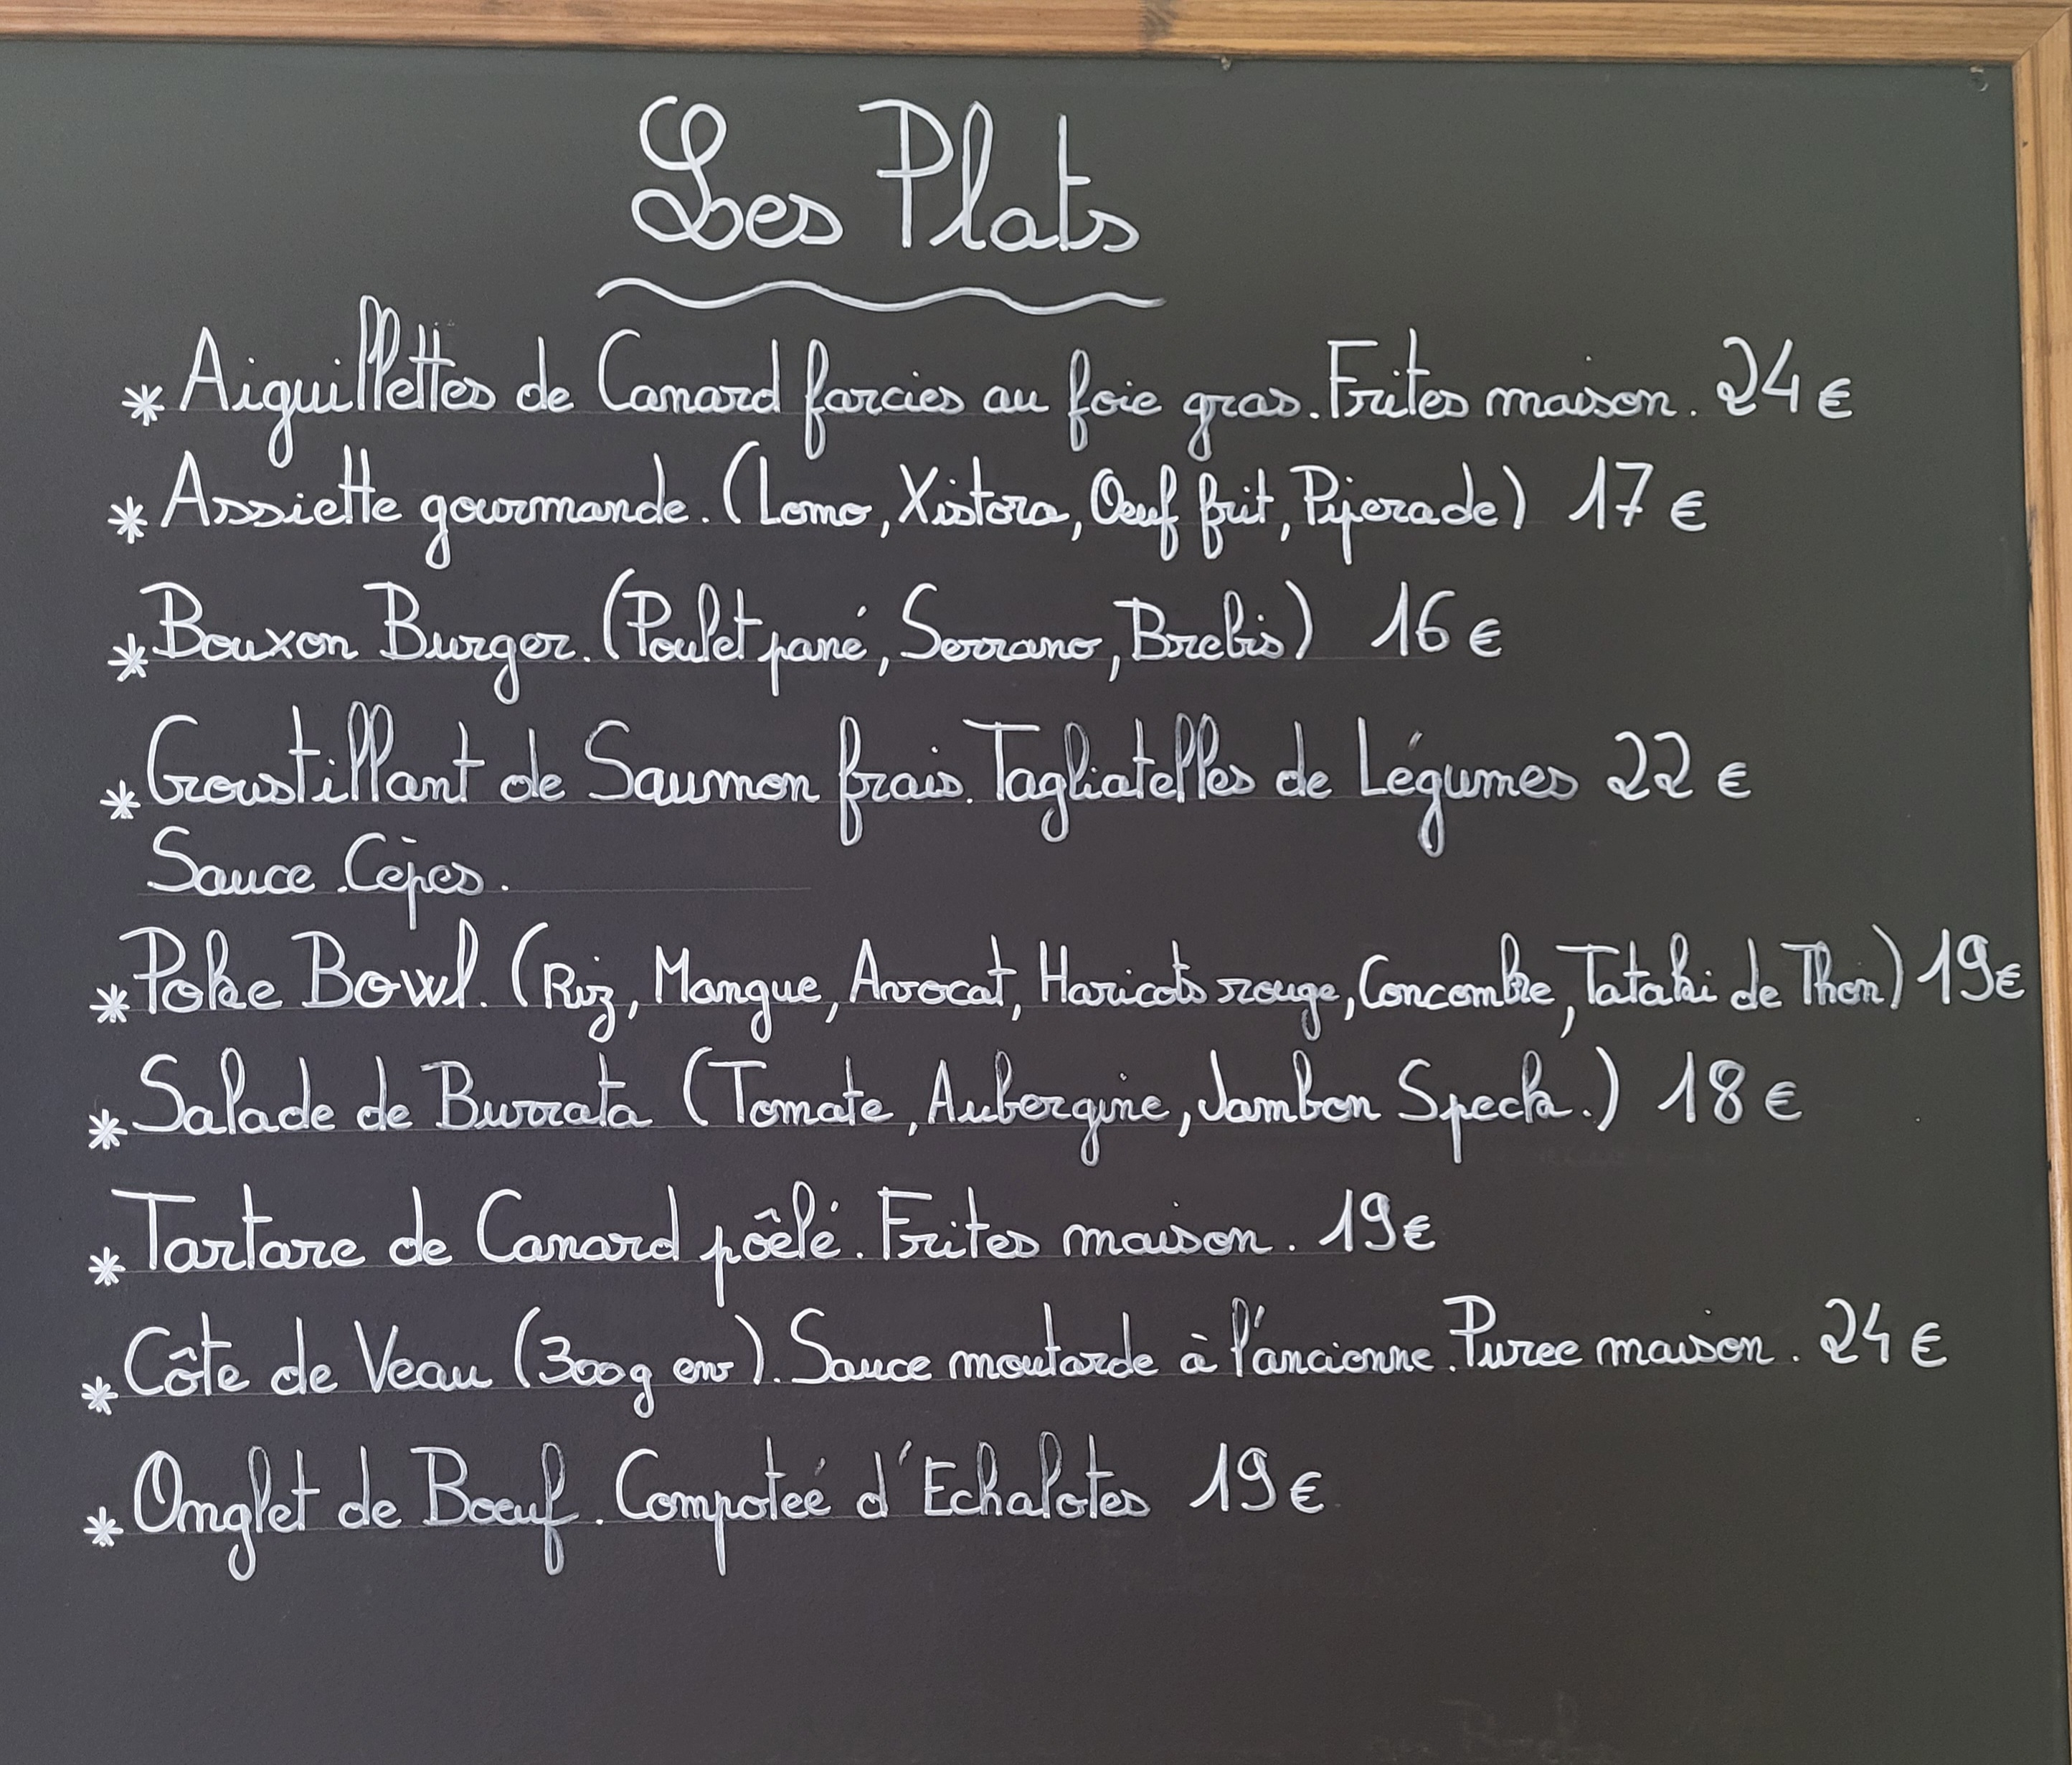 Les Plats
* Aiguillettes de Canard farcies au foie gras. Frites maison. 24 €
* Assiette gourmande. (Lomo, Xistora, Oeuf frit, Piperade) 17 €
* Bouxon Burger. (Poulet pané, Serrano, Brebis) 16 €
* Croustillant de Saumon frais. Tagliatelles de Légumes 22 €
Sauce Cèpes.
* Poke Bowl. (Riz, Mangue, Avocat, Haricots rouge, Concombre, Tataki de Thon) 19€
* Salade de Burrata (Tomate, Aubergine, Jambon Speck.) 18 €
* Tartare de Canard pôêlé. Frites maison. 19€
* Côte de Veau (300g env). Sauce moutarde à l'ancienne. Puree maison. 24 €
* Onglet de Boeuf. Compoteé d'Echalotes 19 €